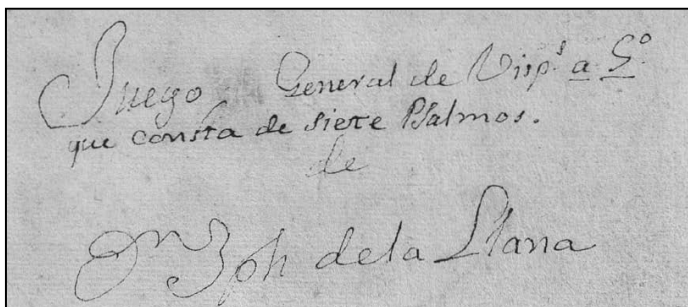 Juego General de Visp.s a 5.o
que consta de siete Psalmos.
de
Dn Jph dela Llana